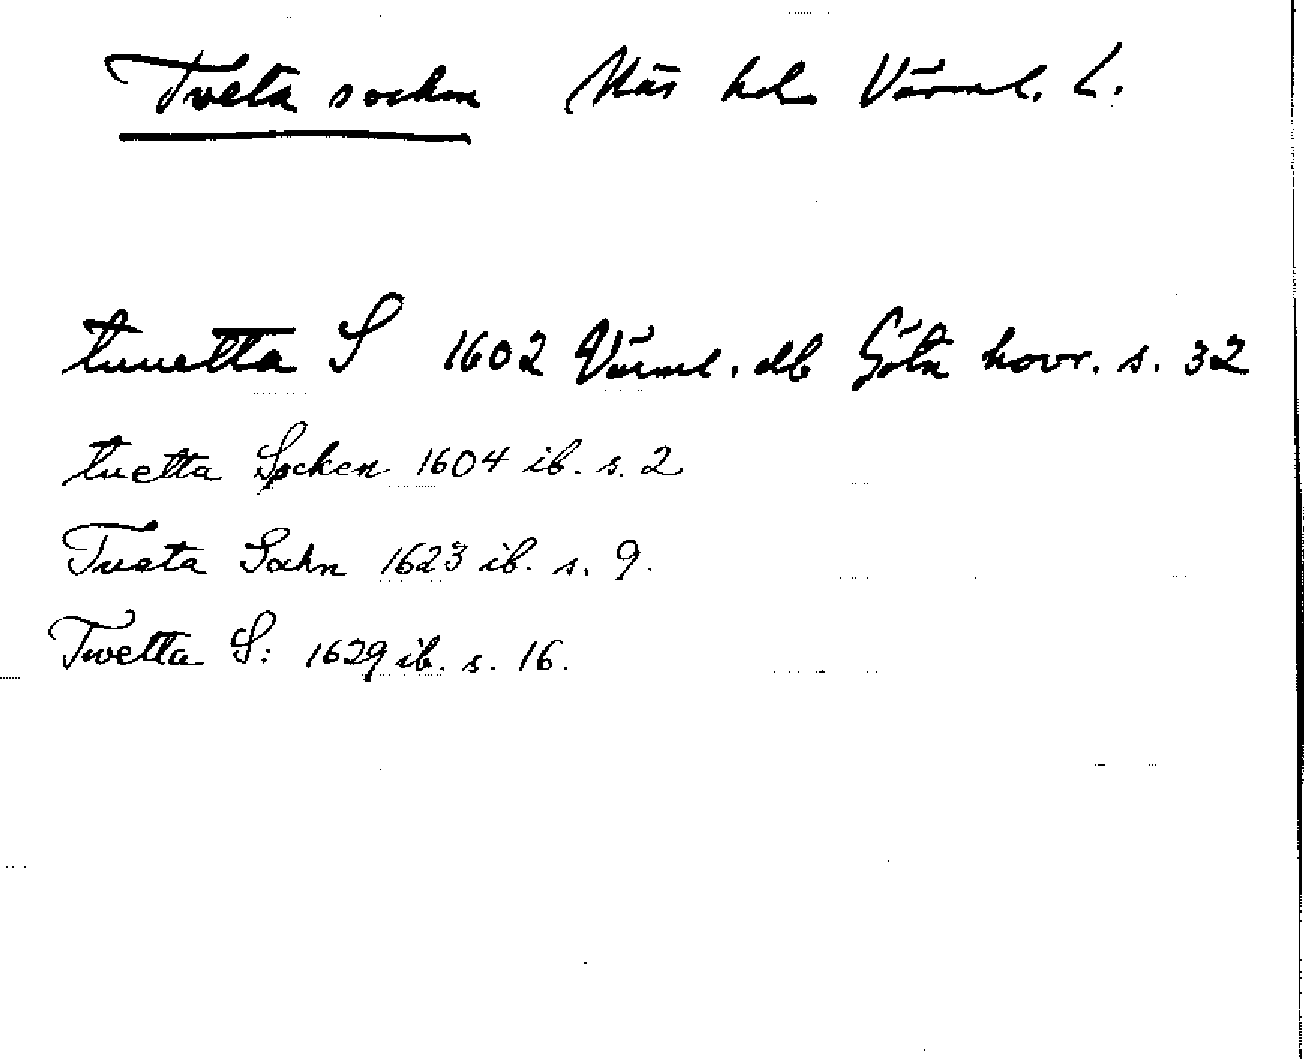 Tveta socken Näs hd Värml. L.
tuuetta S 1602 Värml. db Göta hovr. s. 32
tuetta Socken 1604 ib. s. 2
Tueta Sokn 1623 ib. s. 9.
Twetta S: 1629 ib. s. 16.